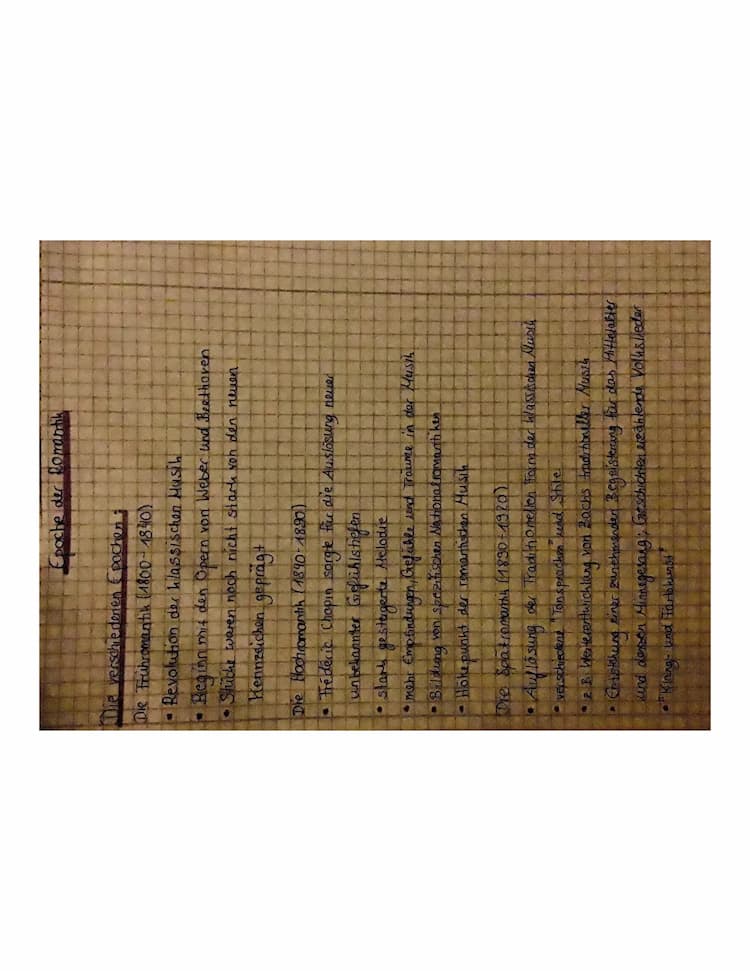 Epoche der Romantik
Die verschiedenen Epochen:
Die Frühromantik (1800-1840)
• Revolution der klassischen Musik
• Beginn mit den Opern von Weber und Beethoven
• Stücke waren noch nicht stark von den neuen
Kennzeichen geprägt
Die Hochromantik (1840-1890)
• Fréderic Chopin sorgte für die Auslösung neuer
unbekannter Gefühlstiefen
• stark gesteigerte Melodie
• mehr Empfindungen, Gefühle und Träume in der Musik
• Bildung von spezifischen Nationalromantiken
• Höhepunkt der romantischen Musik
Die Spätromantik (1890-1920)
• Auflösung der Traditionellen Form der klassischen Musik
• verschiedene "Tonsprachen" und Stile
• z.B Weiterentwicklung von Bachs traditioneller Musik
• Entstehung einer zunehmender Begeisterung für das Mittelalter
und dessen Minnegesang; Geschichten erzählende Volkslieder
• "Klang- und Farbkunst"